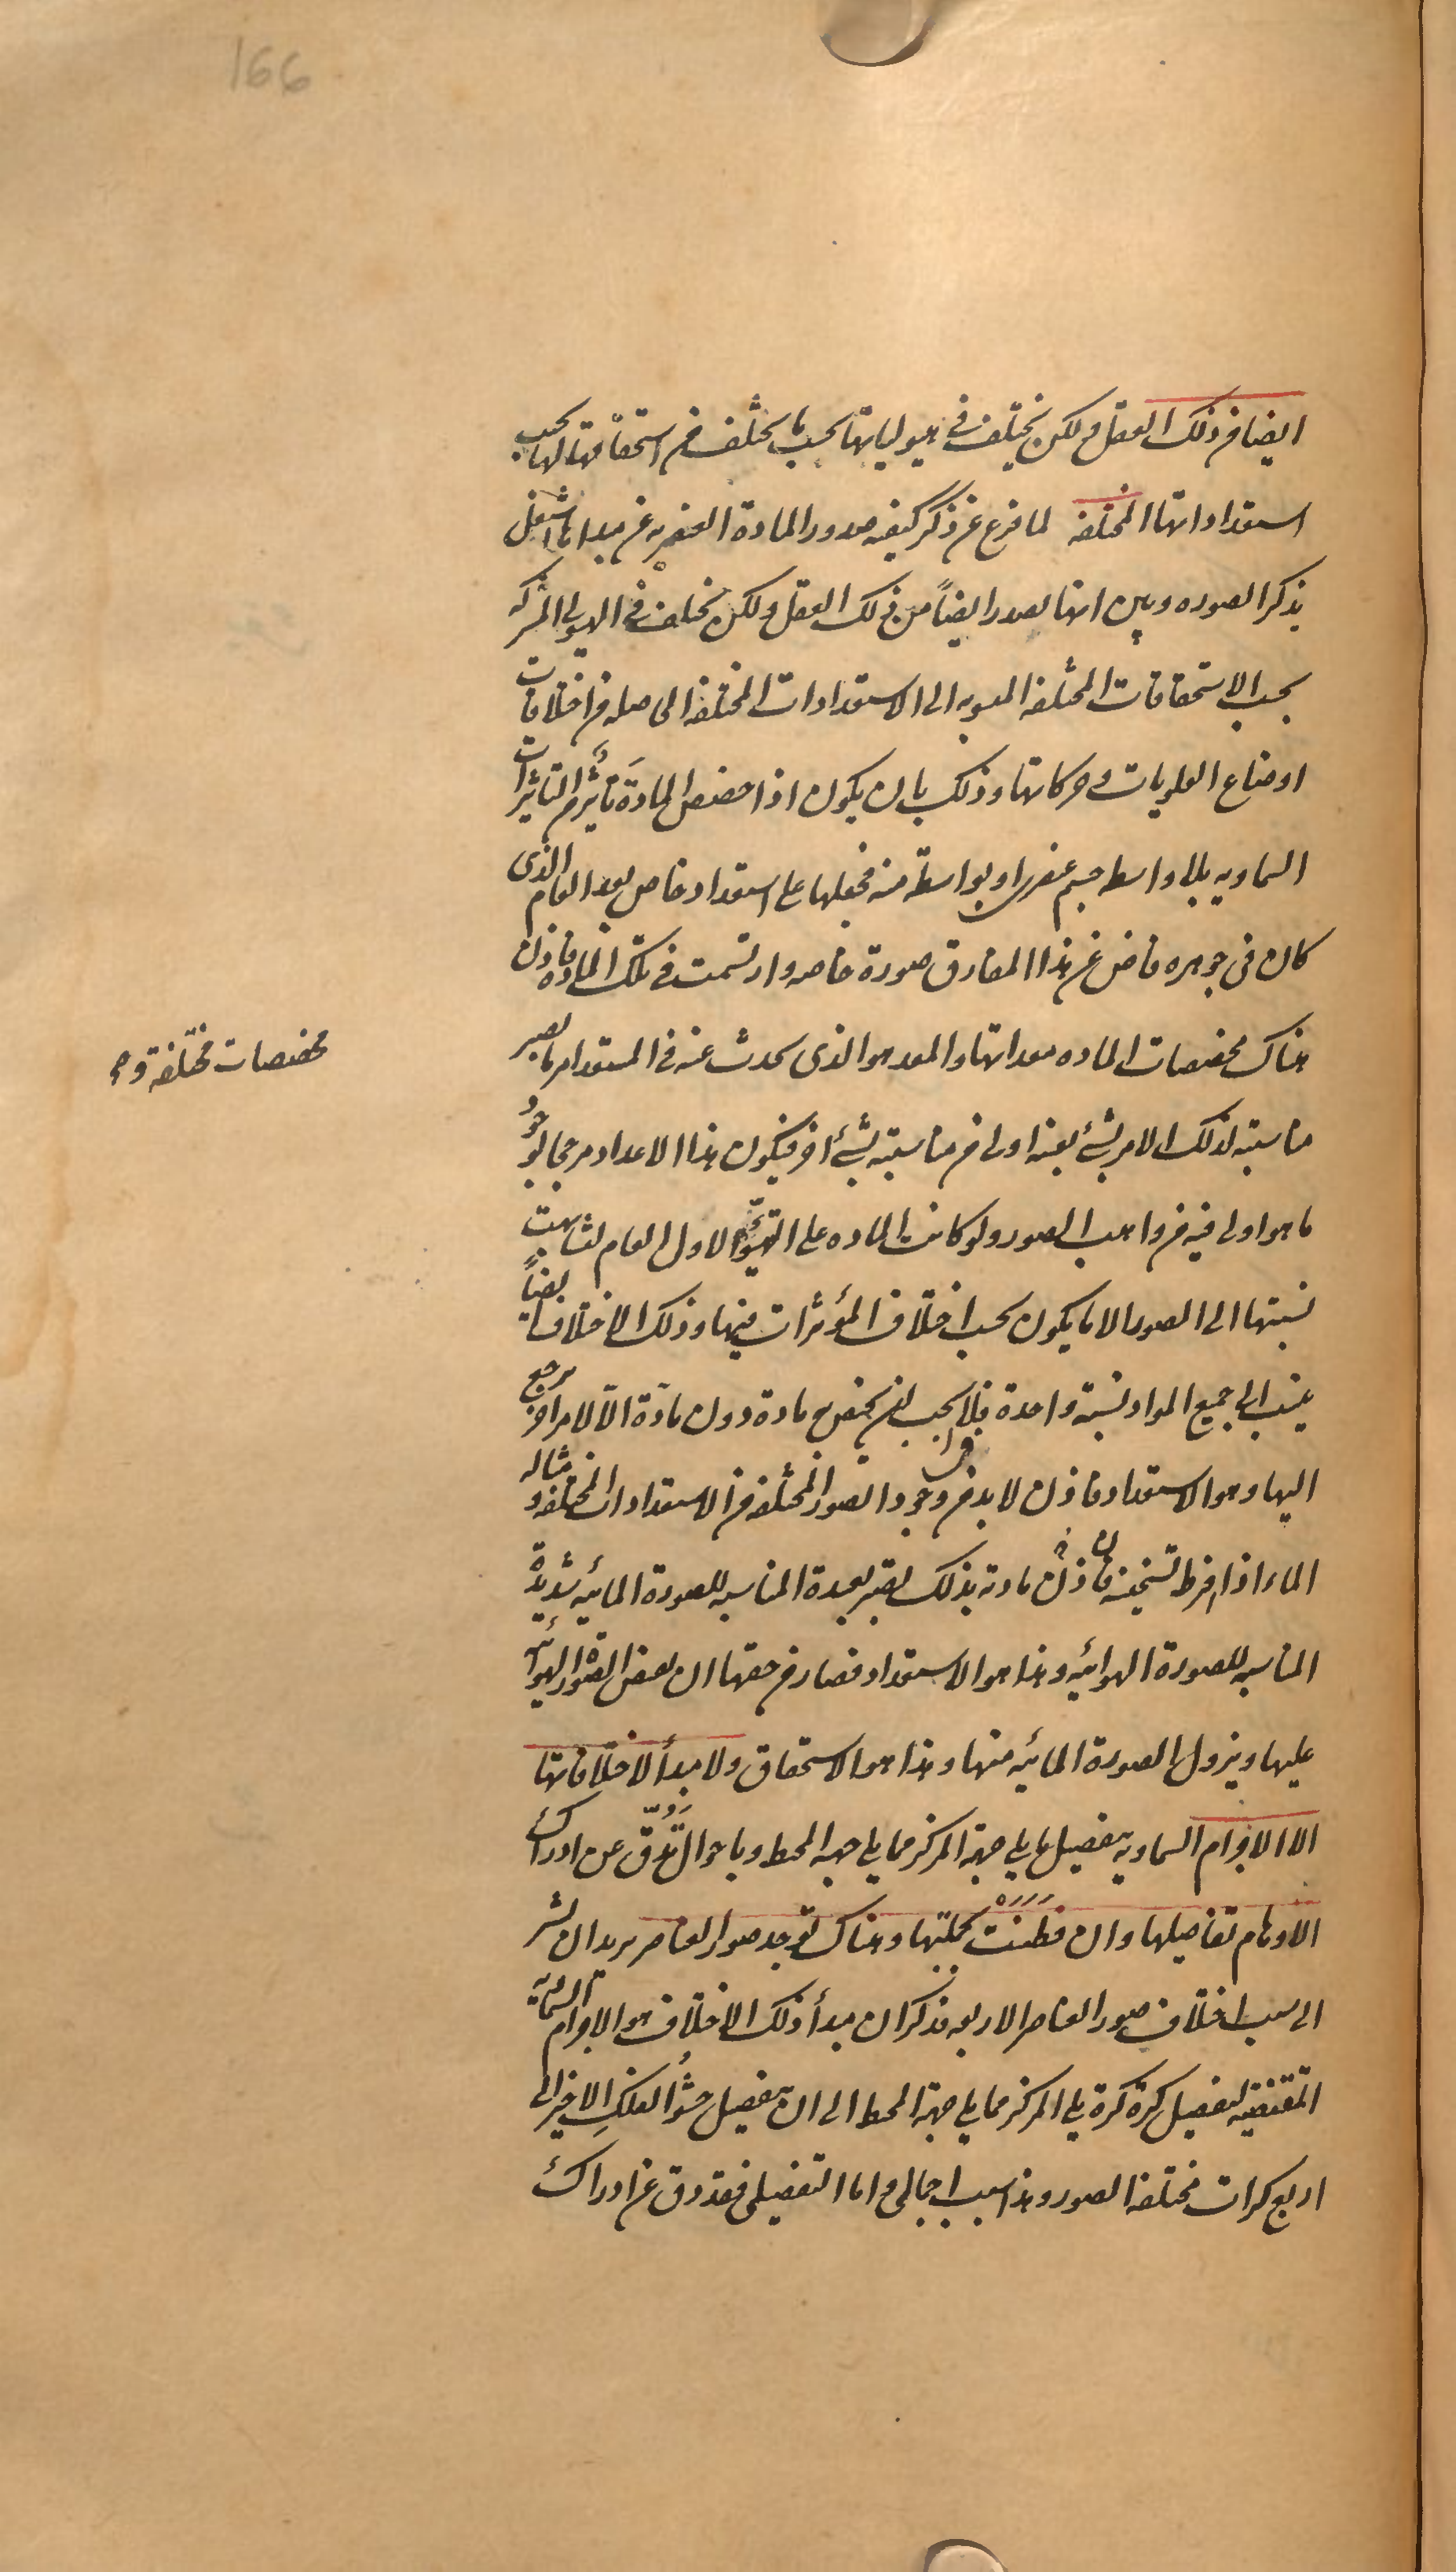 166
ايضا من ذلك العقل و لكن يختلف فى هيولياتها بحسب ما يختلف من استحقاقها لها بحسب
استعداداتها المختلفه لما فرغ عن ذكر كيفيه صدور المادة العنصريه عن مبدائها اشتغل
بذكر الصوره و بين انها تصدر ايضاً من ذلك العقل و لكن تختلف فى الهيولى المشتركه
بحسب الاستحقاقات المختلفه المنسوبه الى الاستعدادات المختلفه الحاصله من اختلافات
اوضاع العلويات و حركاتها و ذلك بان يكون اذا خصص المادة تأثير من التاثيرات
السماويه بلا واسطه جسم عنصرى او بواسطة منه فجعلها على استعداد خاص بعد العام الذى
كان فى جوهره فاض عن هذا المفارق صورة خاصه و ارتسمت فى تلك الماده فاذن
هناك مخصصات الماده معداتها و المعد هو الذى يحدث عنه فى المستعد امر ما يصير
مناسبته لذلك الامر بشئ بعينه اولى من مناسبته بشئ اخر فيكون هذا الاعداد مرجحا لوجود
ما هو اولى فيه من واهب الصور و لو كانت الماده على التهيؤ الاول العام لتشابهت
نسبتها الى الصور الا ما يكون بحسب اختلاف المؤثرات فيها و ذلك الاختلاف ايضاً
ينسب الى جميع المواد نسبة واحدة فلا يجب ان يختص به مادة دون مادة الا لامر اخر يرجع
اليها و هو الاستعداد فاذن لا بد من وجود الصور المختلفه من الاستعدادات المختلفه و مثاله
الماء اذا افرط تسخينه فان مادته بذلك تصير بعيدة المناسبه للصورة المائيه شديدة
المناسبه للصورة الهوائيه و هذا هو الاستعداد فصار من حقها ان تفيض الصورة الهوائية
عليها و يزول الصورة المائيه منها و هذا هو الاستحقاق و لا مبدأ لاختلافاتها
الا الاجرام السماويه بتفصيل ما يلى جهة المركز مما يلى جهه المحيط و باحوال تدقّ عن ادراك
الاوهام تفاصيلها و ان فطنت بجملتها و هناك توجد صور العناصر يريد ان يشير
الى سبب اختلاف صور العناصر الاربعه فذكر ان مبدأ ذلك الاختلاف هو الاجرام السماوية
المقتضيه لتفصيل كرة كرة يلى المركز مما يلى جهة المحيط الى ان يتفصيل حشو الفلك الاخير الى
اربع كرات مختلفه الصور و هذا سبب اجمالى و اما التفصيلى فقد دق عن ادراك
مخصصات مختلفة و م